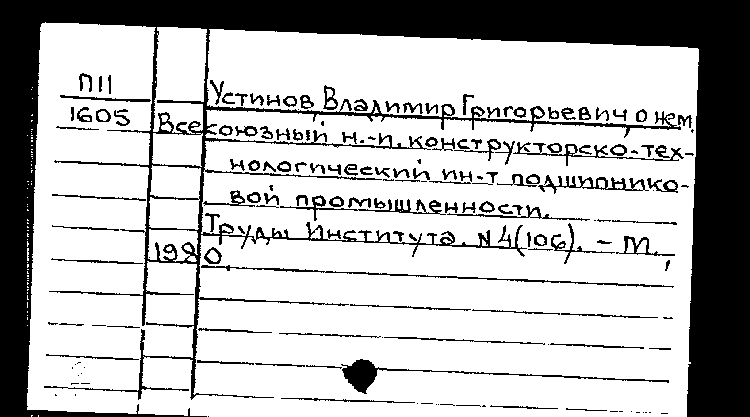 П11
1605
Устинов, Владимир Григорьевич, о нем.
Всесоюзный н.-и. конструкторско-тех-
нологический ин-т подшипнико-
вой промышленности.
Труды Института. N 4(106). - М.,
1980.